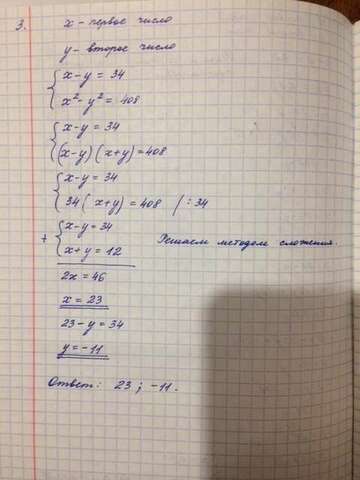 3. x - первое число
y - второе число
x - y = 34
x² - y² = 408
x - y = 34
(x-y)(x+y) = 408
x - y = 34
34(x+y) = 408 / : 34
+ x - y = 34
x + y = 12 Решаем методом сложения.
2x = 46
x = 23
23 - y = 34
y = -11
Ответ: 23 ; -11.